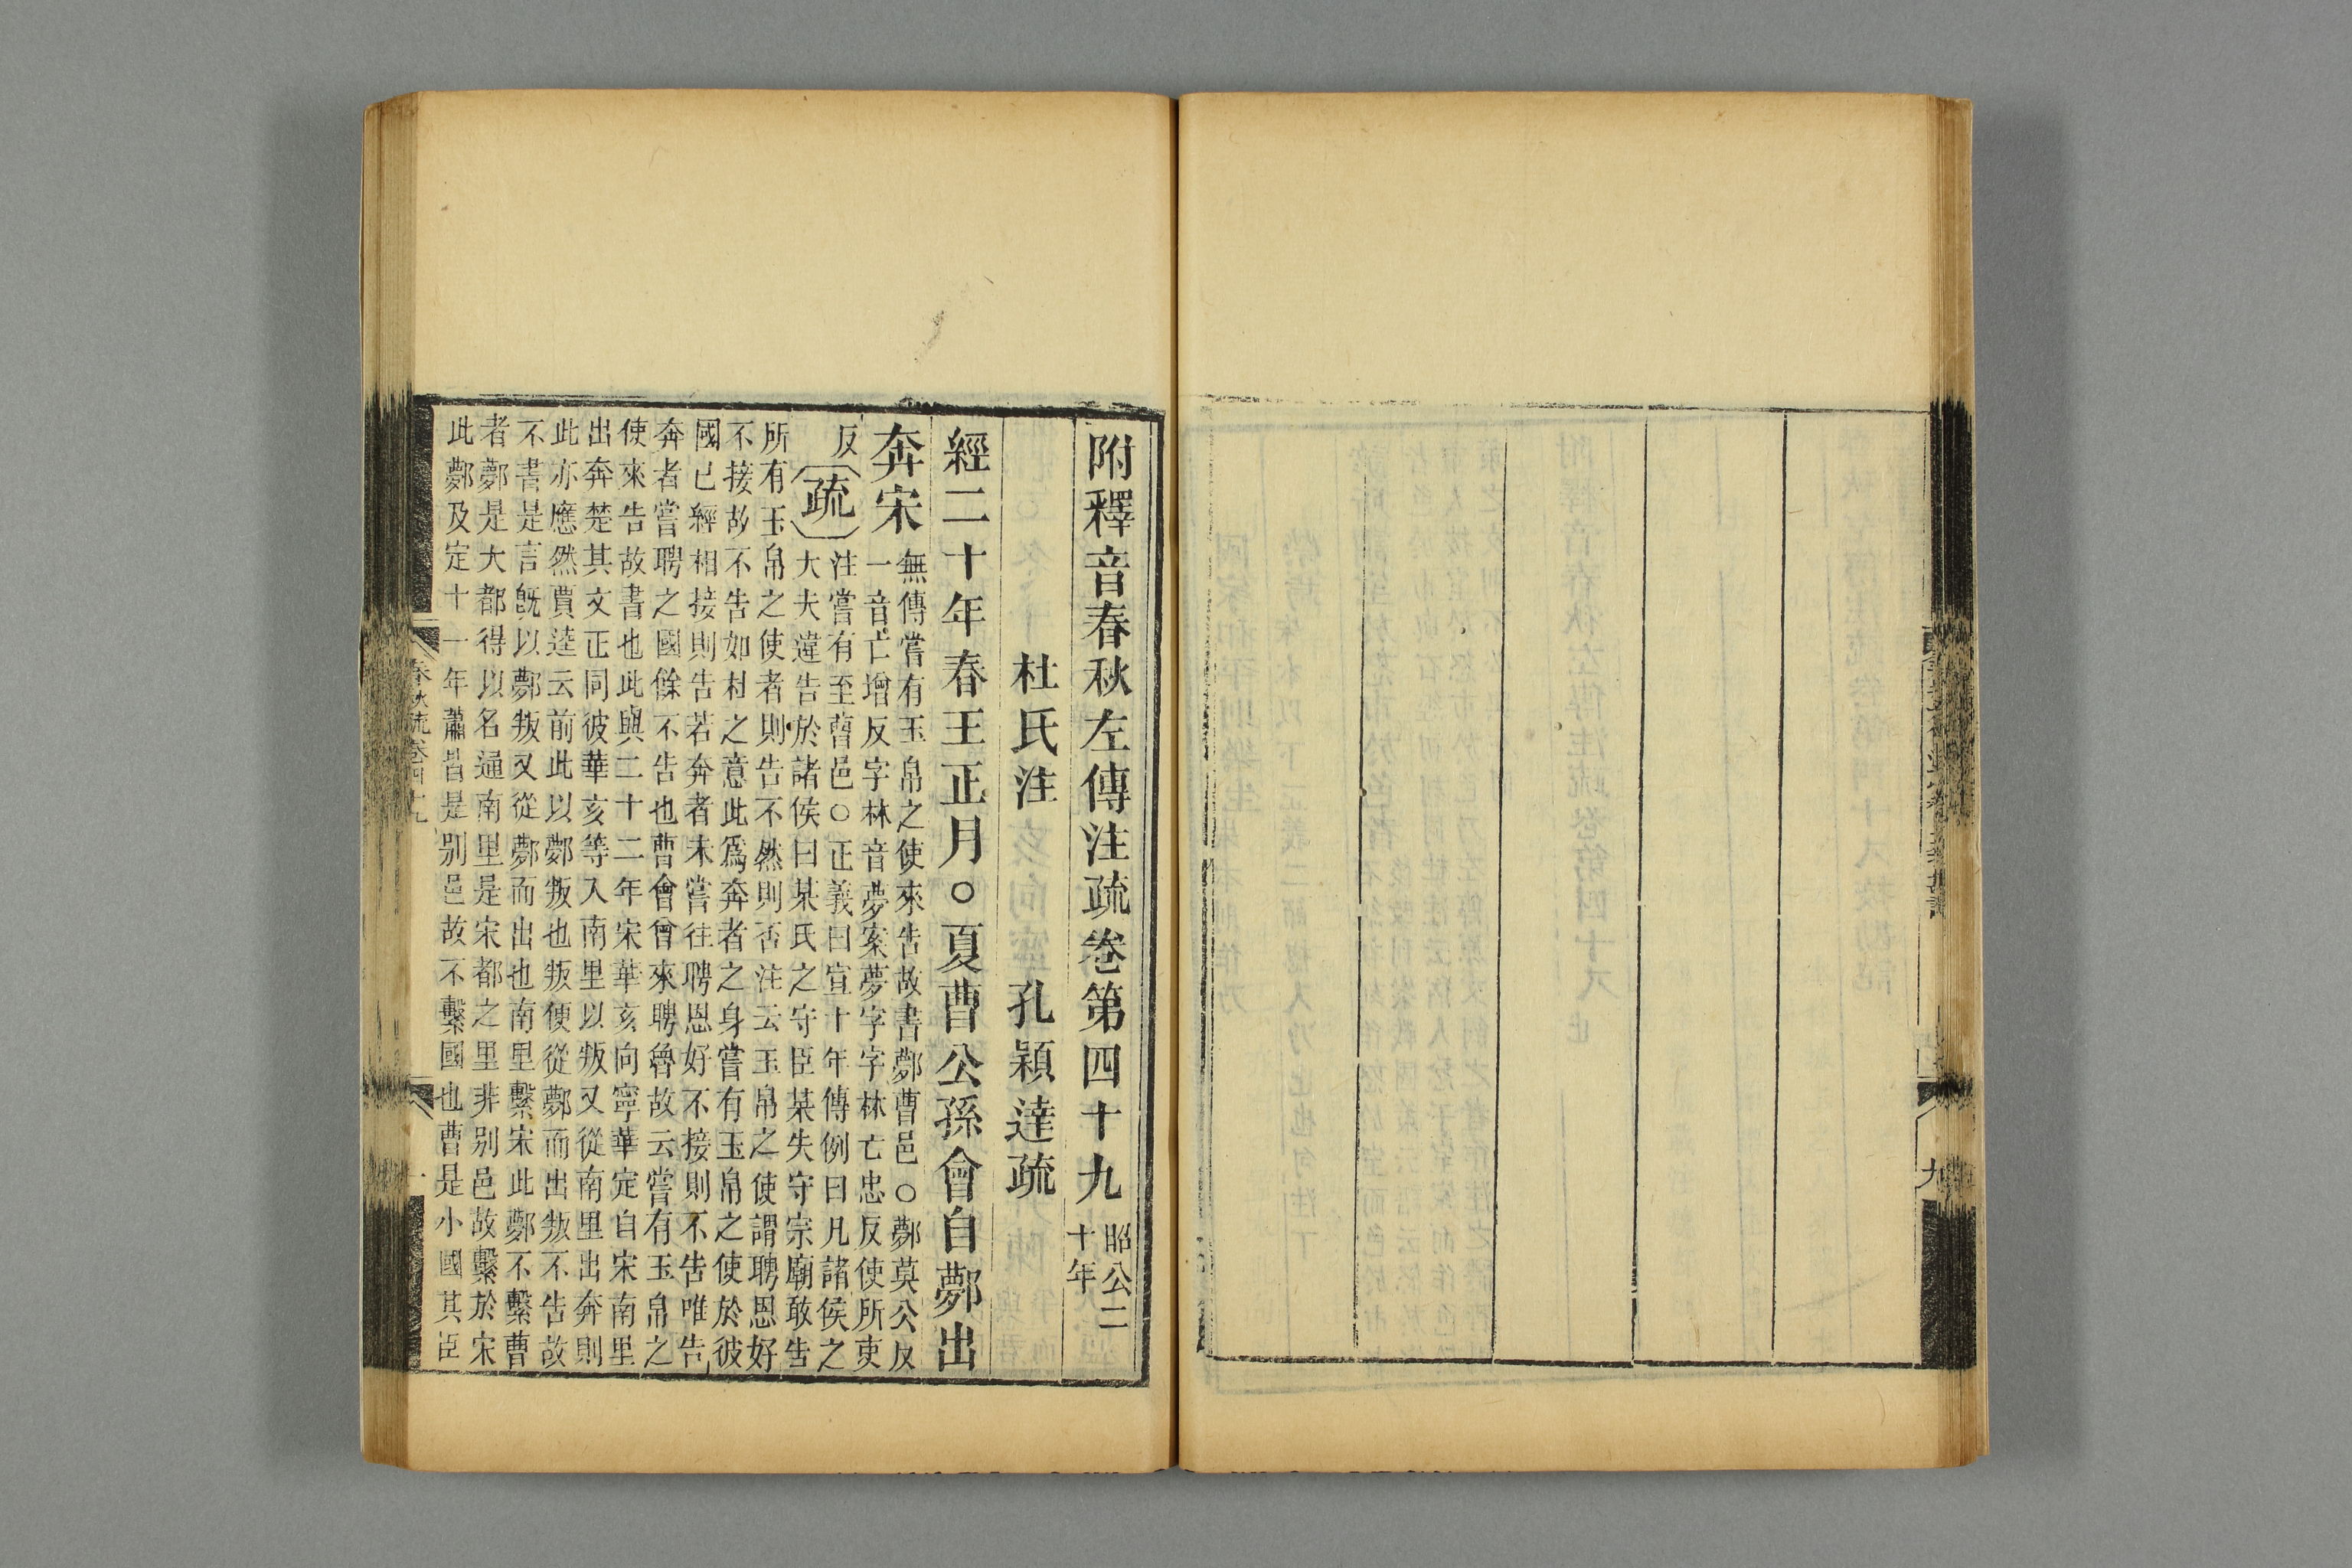 附釋音春秋左傳注疏卷第四十九
昭公二
十年
杜氏注　孔穎達疏
經二十年春王正月○夏曹公孫會自鄸出
奔宋
無傳嘗有玉帛之使來告故書鄸曹邑○鄸莫公反
一音亡增反字林音夢案夢字字林亡忠反使所吏
反
疏
注嘗有至曹邑○正義曰宣十年傳例曰凡諸侯之
大夫違告於諸侯曰某氏之守臣某失守宗廟敢告
所有玉帛之使者則告不然則否注云玉帛之使謂聘恩好
不接故不告如杜之意此為奔者之身嘗有玉帛之使於彼
國已經相接則告若奔者未嘗往聘恩好不接則不告唯告
奔者嘗聘之國餘不告也曹會曾來聘魯故云嘗有玉帛之
使來告故書也此與二十二年宋華亥向寧華定自宋南里
出奔楚其文正同彼華亥等入南里以叛又從南里出奔則
此亦應然賈逵云前此以鄸叛也叛便從鄸而出叛不告故
不書是言既以鄸叛又從鄸而出也南里繫宋此鄸不繫曹
者鄸是大都得以名通南里是宋都之里非別邑故繫於宋
此鄸及定十一年蕭皆是別邑故不繫國也曹是小國其臣
春秋疏卷四十九
一
九